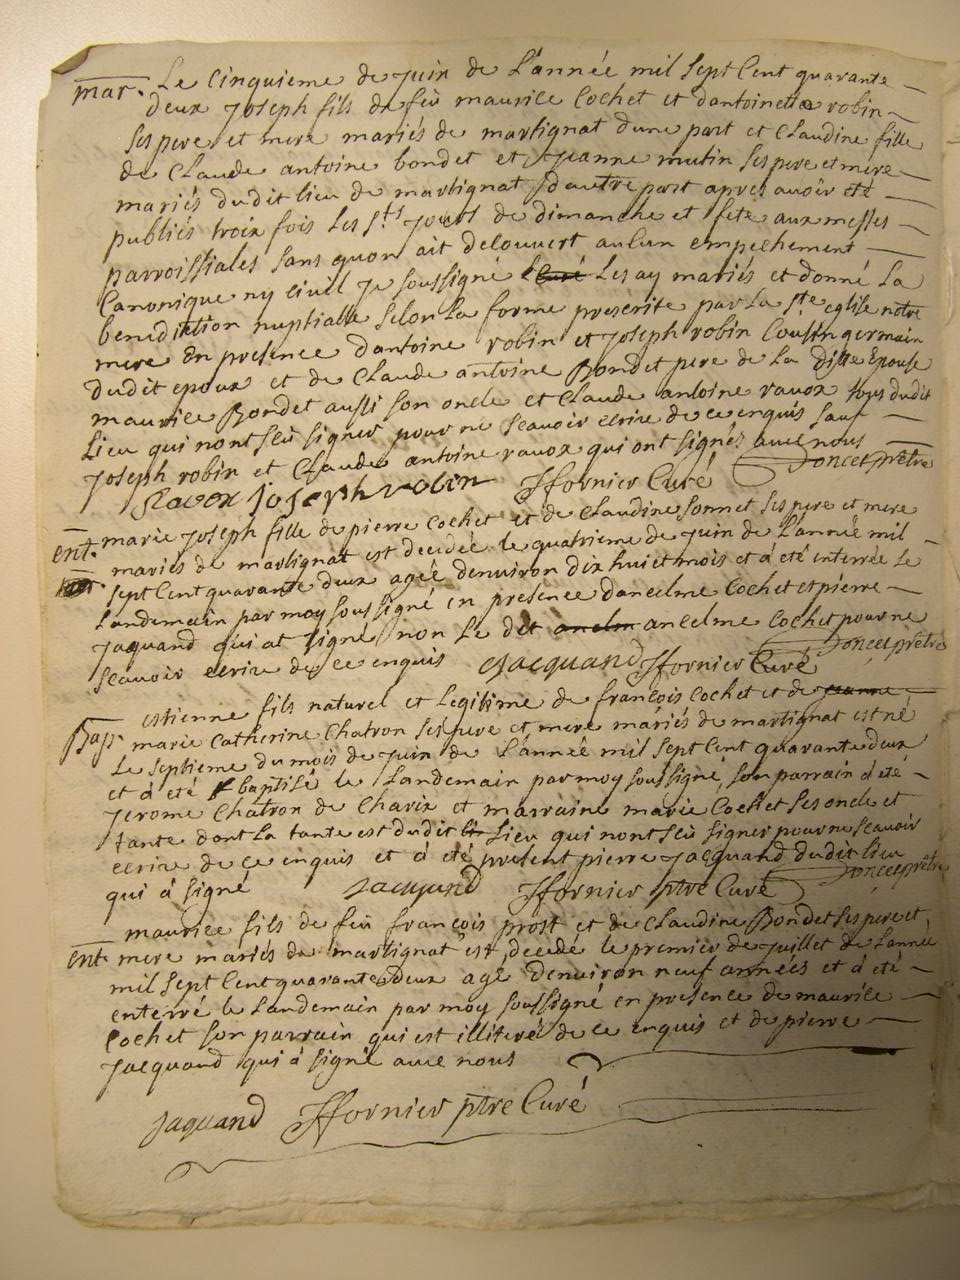 mar. Le Cinquieme de juin de L'année mil sept Cent quarante
deux joseph fils de feu maurice Cochet et d'antoinette robin
ses pere et mere mariés de martignat d'une part et Claudine fille
de Claude antoine bondet et jeanne mutin ses pere et mere
mariés dudit lieu de martignat d'autre part apres avoir été
publiés trois fois les sts jours de dimanche et fete aux messes
parroissiales sans qu'on ait decouvert aucun empechement
Canonique ny civil je soussigné curé Les ay mariés et donné La
benediction nuptialle selon La forme prescrite par La ste eglise notre
mere En presence d'antoine robin et joseph robin Cousin germain
dudit epoux et de Claude antoine Bondet pere de La ditte Epouse
maurice Bondet aussi son oncle et Claude antoine ravox tous dudit
Lieu qui n'ont sçeu signer pour ne sçavoir ecrire de ce enquis sauf
joseph robin et Claude antoine ravox qui ont signés avec nous
Ravox joseph robin ffornier Curé Poncet prêtre
ent. marie joseph fille de pierre Cochet et de Claudine sonnet ses pere et mere
mariés de martignat est decedée le quatrieme de juin de L'année mil
sept Cent quarante deux agée d'environ dix huict mois et á été enterrée Le
Landemain par moy soussigné en presence d'ancelme Cochet et pierre
jaquand qui at signé non Le dit anclm ancelme Cochet pour ne
scavoir ecrire de ce enquis Jacquand ffornier Curé Poncet prêtre
Bap. estienne fils naturel et Legitime de françois Cochet et de jeanne
marie Catherine Chatron ses pere et mere mariés de martignat est né
Le septieme du mois de juin de L'année mil sept Cent quarante deux
et á été baptisé le Landemain par moy soussigné, son parrain á été
jerome Chatron de Charix et marraine marie Cochet ses oncle et
tante dont La tante est dudit Lieu qui n'ont sçeu signer pour ne scavoir
ecrire de ce enquis et á été present pierre jacquand dudit lieu
qui á signé jacquand ffornier ptre Curé Poncet prêtre
ent. maurice fils de feu françois prost et de Claudine Bondet ses pere et
mere mariés de martignat est decedé le premier de juillet de L'année
mil sept Cent quarante deux agé d'environ neuf années et á été
enterré le Landemain par moy soussigné en presence de maurice
Cochet son parrain qui est illiteré de ce enquis et de pierre
jacquand qui á signé avec nous
jaquand ffornier ptre Curé